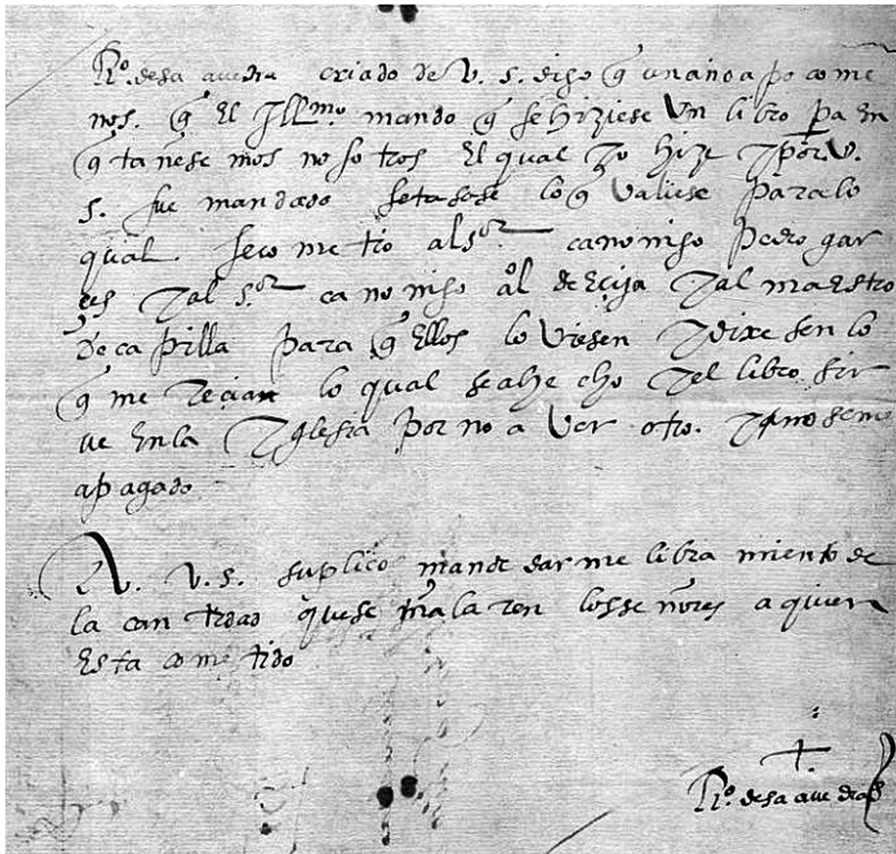 Rº. desaavedra criado de V. S. digo q̃ un año a po co me
nos. q̃ El Illmo. mando q̃ se hiziese Un libro pa En
q̃ tañese mos nosotros El qual yo hize y por V.
S. fue mandado se tasase lo q̃ Valiese para lo
qual se co me tio al sor. canonigo pedro gar
ces y al sor. canonigo al de Ecija y al maestro
de capilla para q̃ Ellos lo Viesen y dixesen lo
q̃ me recian lo qual se a he cho y el libro sir
ve En la yglesia por no a Ver otro. y no se me
a pagado
A. V. S. suplico mande darme libra miento de
la can tidad que se ñala ren los se ñores a quien
Esta come tido
Rº. desaavedra